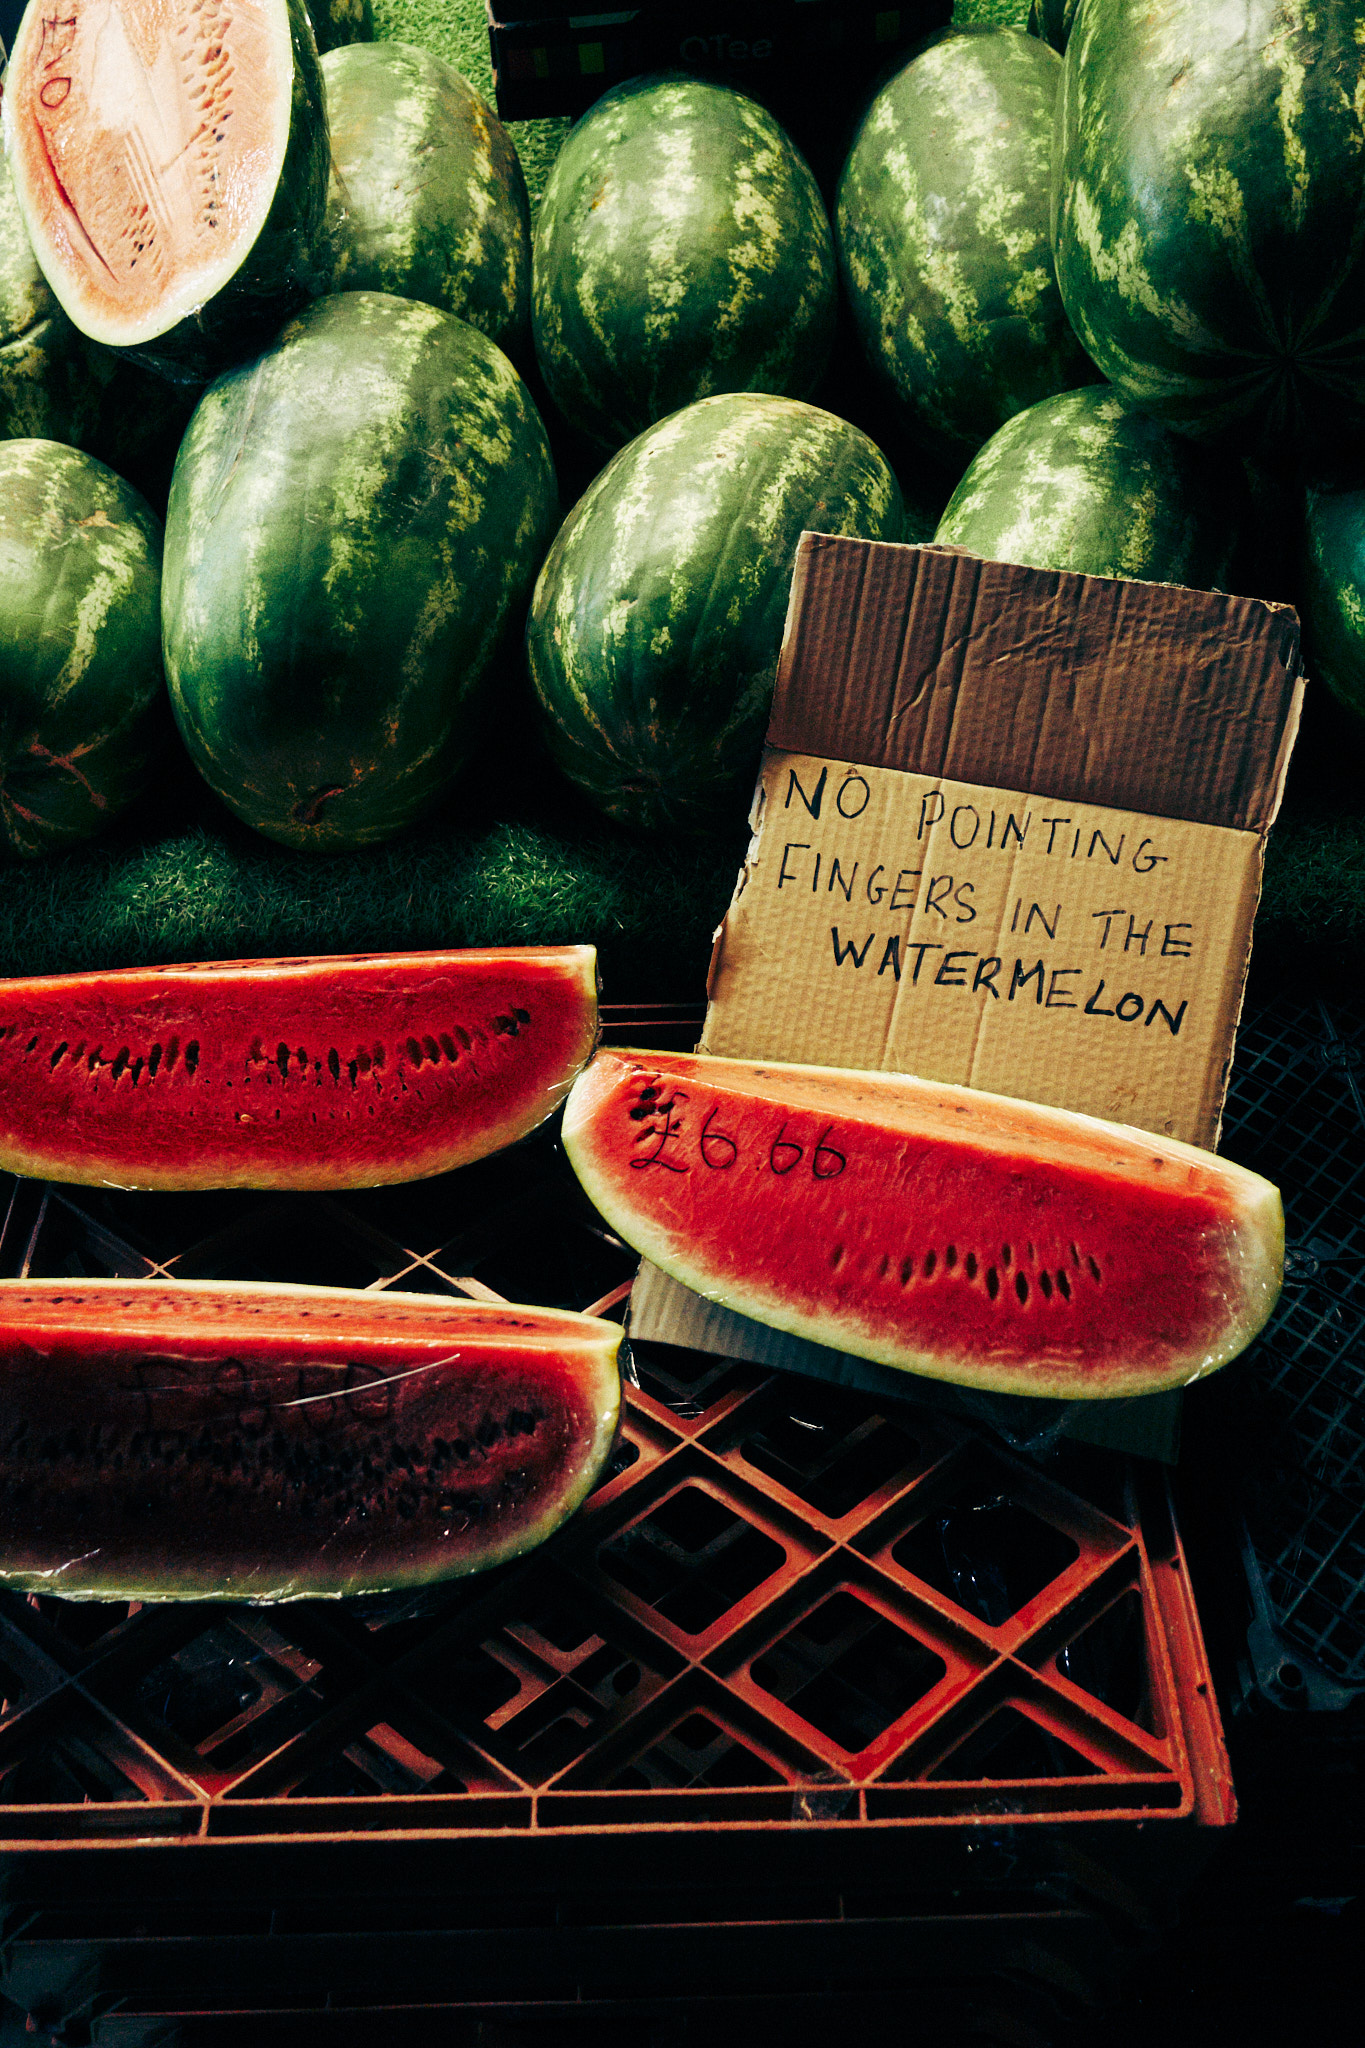 £10
QTee
NO POINTING
FINGERS IN THE
WATERMELON
£6.66
£8.80